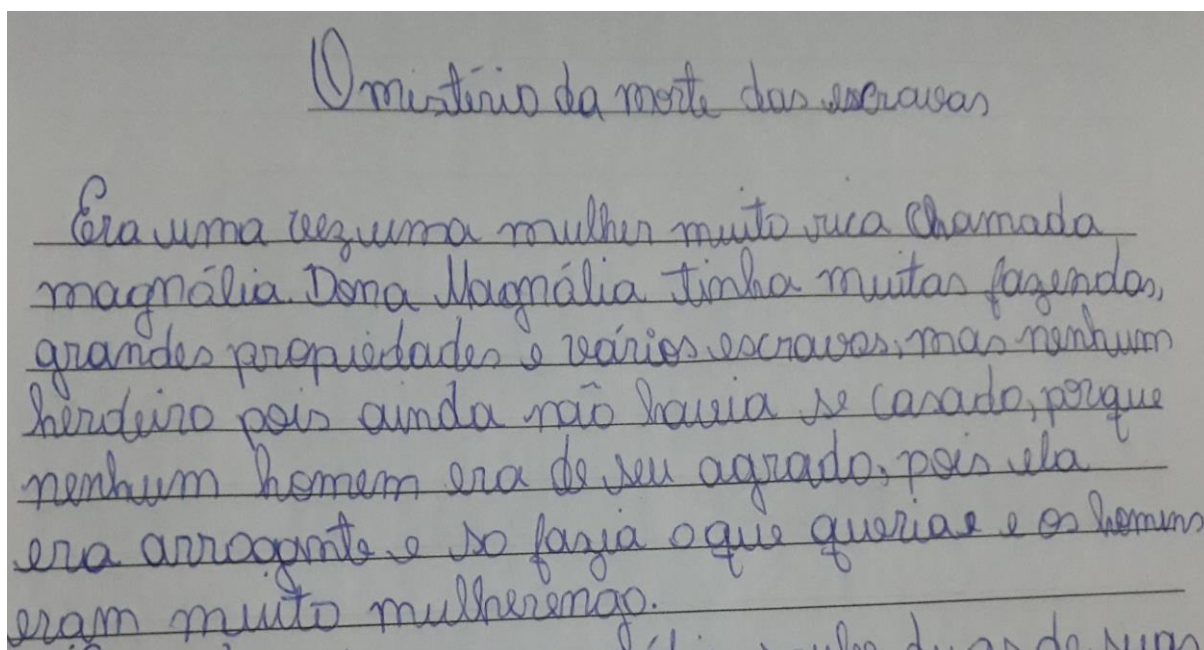 O mistério da morte das escravas
Era uma vez uma mulher muito rica chamada
magnália. Dona Magnália tinha muitas fazendas,
grandes propiedades e vários escravos, mas nenhum
herdeiro pois ainda não havia se casado, porque
nenhum homem era de seu agrado, pois ela
era arrogante e so fazia oque queria e e os homens
eram muito mulherengo.
duas de suas